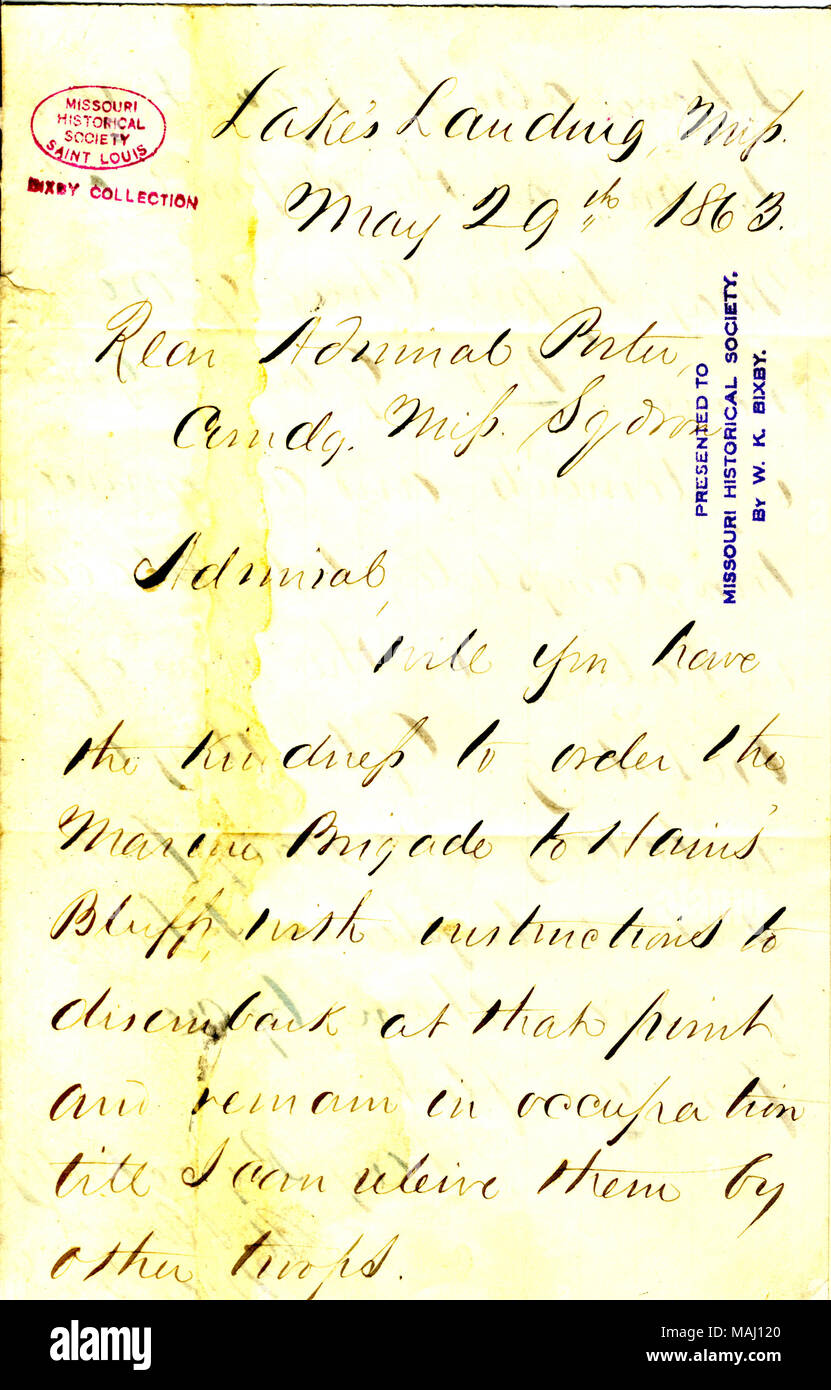 MISSOURI
HISTORICAL
SOCIETY
SAINT LOUIS
BIXBY COLLECTION
Lake's Landing, Miss.
May 29th 1863.
PRESENTED TO
MISSOURI HISTORICAL SOCIETY.
BY W. K. BIXBY.
Rear Admiral Porter,
Comdg. Miss. Sqdron
Admiral,
Will you have
the kindness to order the
Marine Brigade to Hains'
Bluff, with instructions to
disembark at that point
and remain in occupation
till I can releive them by
other troops.
alamy
a
alamy
a
alamy
Image ID: MAJ120
www.alamy.com